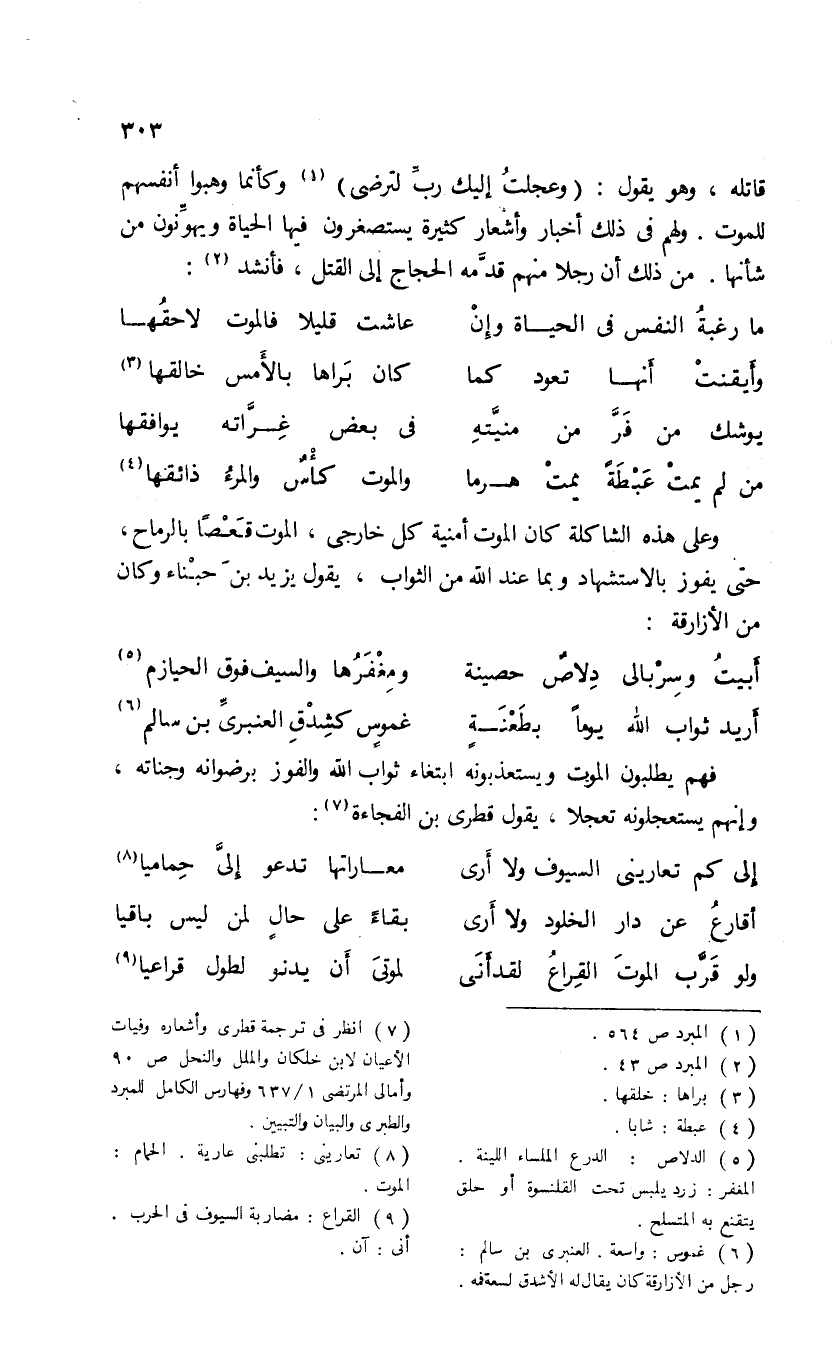 ٣٠٣
قاتله ، وهو يقول : (وعجلتُ إليك ربِّ لترضى) (١) وكأنما وهبوا أنفسهم
للموت . ولهم فى ذلك أخبار وأشعار كثيرة يستصغرون فيها الحياة ويهوِّنون من
شأنها . من ذلك أن رجلا منهم قدَّمه الحجاج إلى القتل ، فأنشد (٢) :
ما رغبةُ النفس فى الحيـــاة وإنْ عاشت قليلا فالموت لاحقُهـــا
وأَيقنتْ أَنهـــا تعود كما كان بَراها بالأَمس خالقها (٣)
يوشك من فَرَّ من منيَّتهِ فى بعض غِـــرَّاته يوافقها
من لم يمتْ عَبْطَةً يمتْ هـــرما والموت كأْسٌ والمرءُ ذائقها (٤)
وعلى هذه الشاكلة كان الموت أمنية كل خارجى ، الموت قَعْصًا بالرماح ،
حتى يفوز بالاستشهاد وبما عند الله من الثواب ، يقول يزيد بن حبْناء وكان
من الأزارقة :
أَبيتُ وسِرْبالى دِلاصٌ حصينة ومِغْفَرُها والسيف فوق الحيازم (٥)
أَريد ثواب الله يوماً بطَعْنَـــةٍ غموسٍ كشِدْقِ العنبرىِّ بن سالم (٦)
فهم يطلبون الموت ويستعذبونه ابتغاء ثواب الله والفوز برضوانه وجناته ،
وإنهم يستعجلونه تعجلا ، يقول قطرى بن الفجاءة (٧) :
إلى كم تعارينى السيوف ولا أَرى معـــاراتها تدعو إلىَّ حِماميا (٨)
أقارعُ عن دار الخلود ولا أَرى بقاءً على حالٍ لمن ليس باقيا
ولو قَرَّب الموتَ القِراعُ لقد أَنَى لموتىَ أَن يدنو لطول قراعيا (٩)
(١) المبرد ص ٥٦٤ .
(٢) المبرد ص ٤٣ .
(٣) براها : خلقها .
(٤) عبطة : شابا .
(٥) الدلاص : الدرع الملساء اللينة .
المغفر : زرد يلبس تحت القلنسوة أو حلق
يتقنع به المتسلح .
(٦) غموس : واسعة . العنبرى بن سالم :
رجل من الأزارقة كان يقال له الأشدق لسعة فمه .
(٧) انظر فى ترجمة قطرى وأشعاره وفيات
الأعيان لابن خلكان والملل والنحل ص ٩٠
وأمالى المرتضى ٦٣٧/١ وفهارس الكامل للمبرد
والطبرى والبيان والتبيين .
(٨) تعارينى : تطلبنى عارية . الحمام :
الموت .
(٩) القراع : مضاربة السيوف فى الحرب .
أنى : آن .